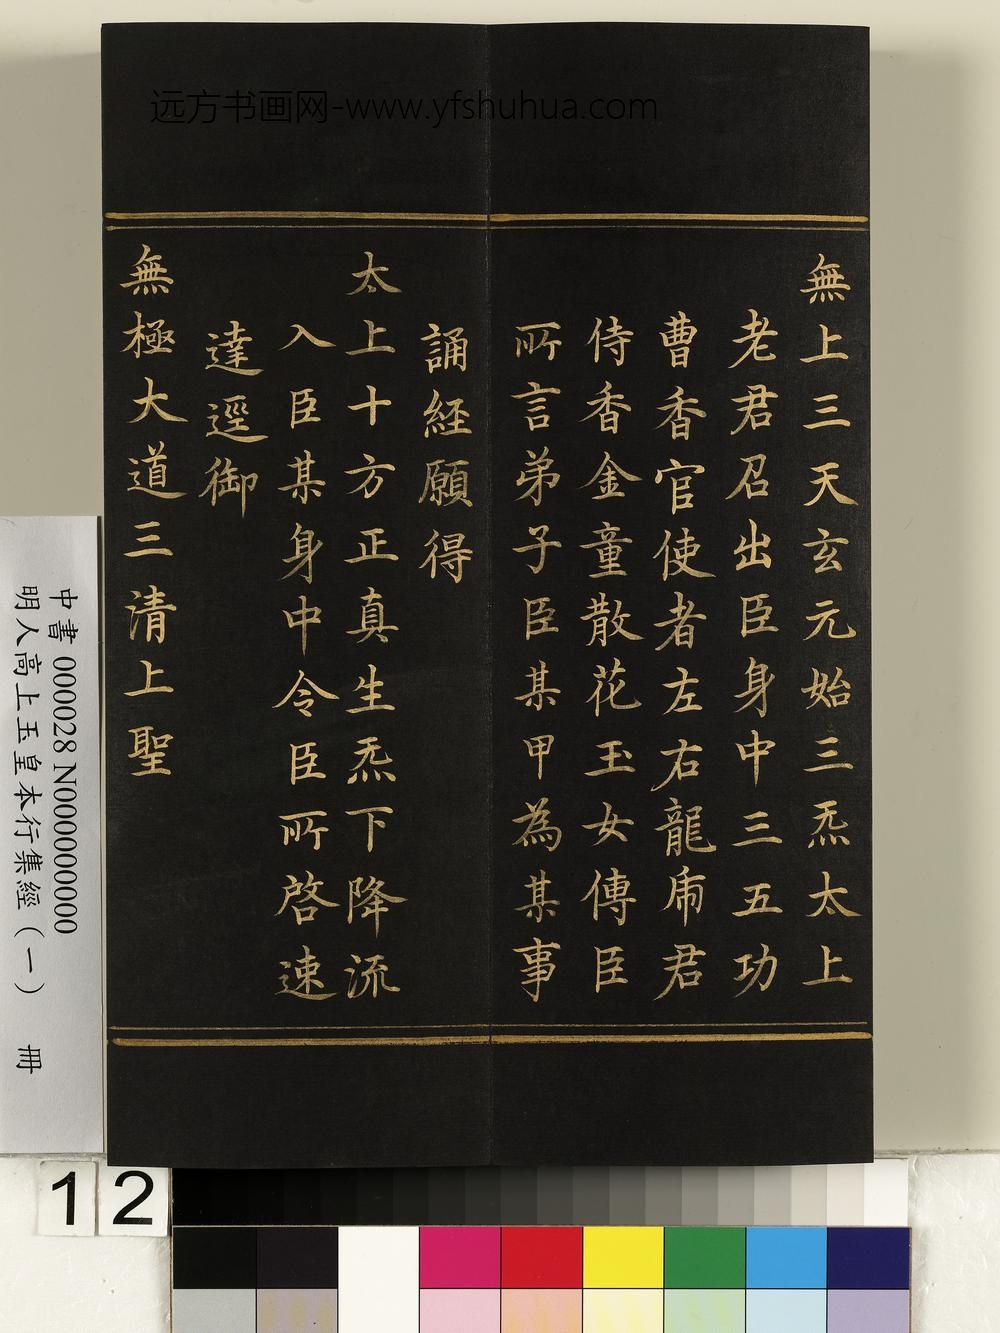 远方书画网-www.yfshuhua.com
無上三天玄元始三炁太上
老君召出臣身中三五功
曹香官使者左右龍虎君
侍香金童散花玉女傳臣
所言弟子臣某甲為某事
誦経願得
太上十方正真生炁下降流
入臣某身中令臣所啓速
達逕御
無極大道三清上聖
中書 000028 N000000000
明人高上玉皇本行集經(一) 冊
12